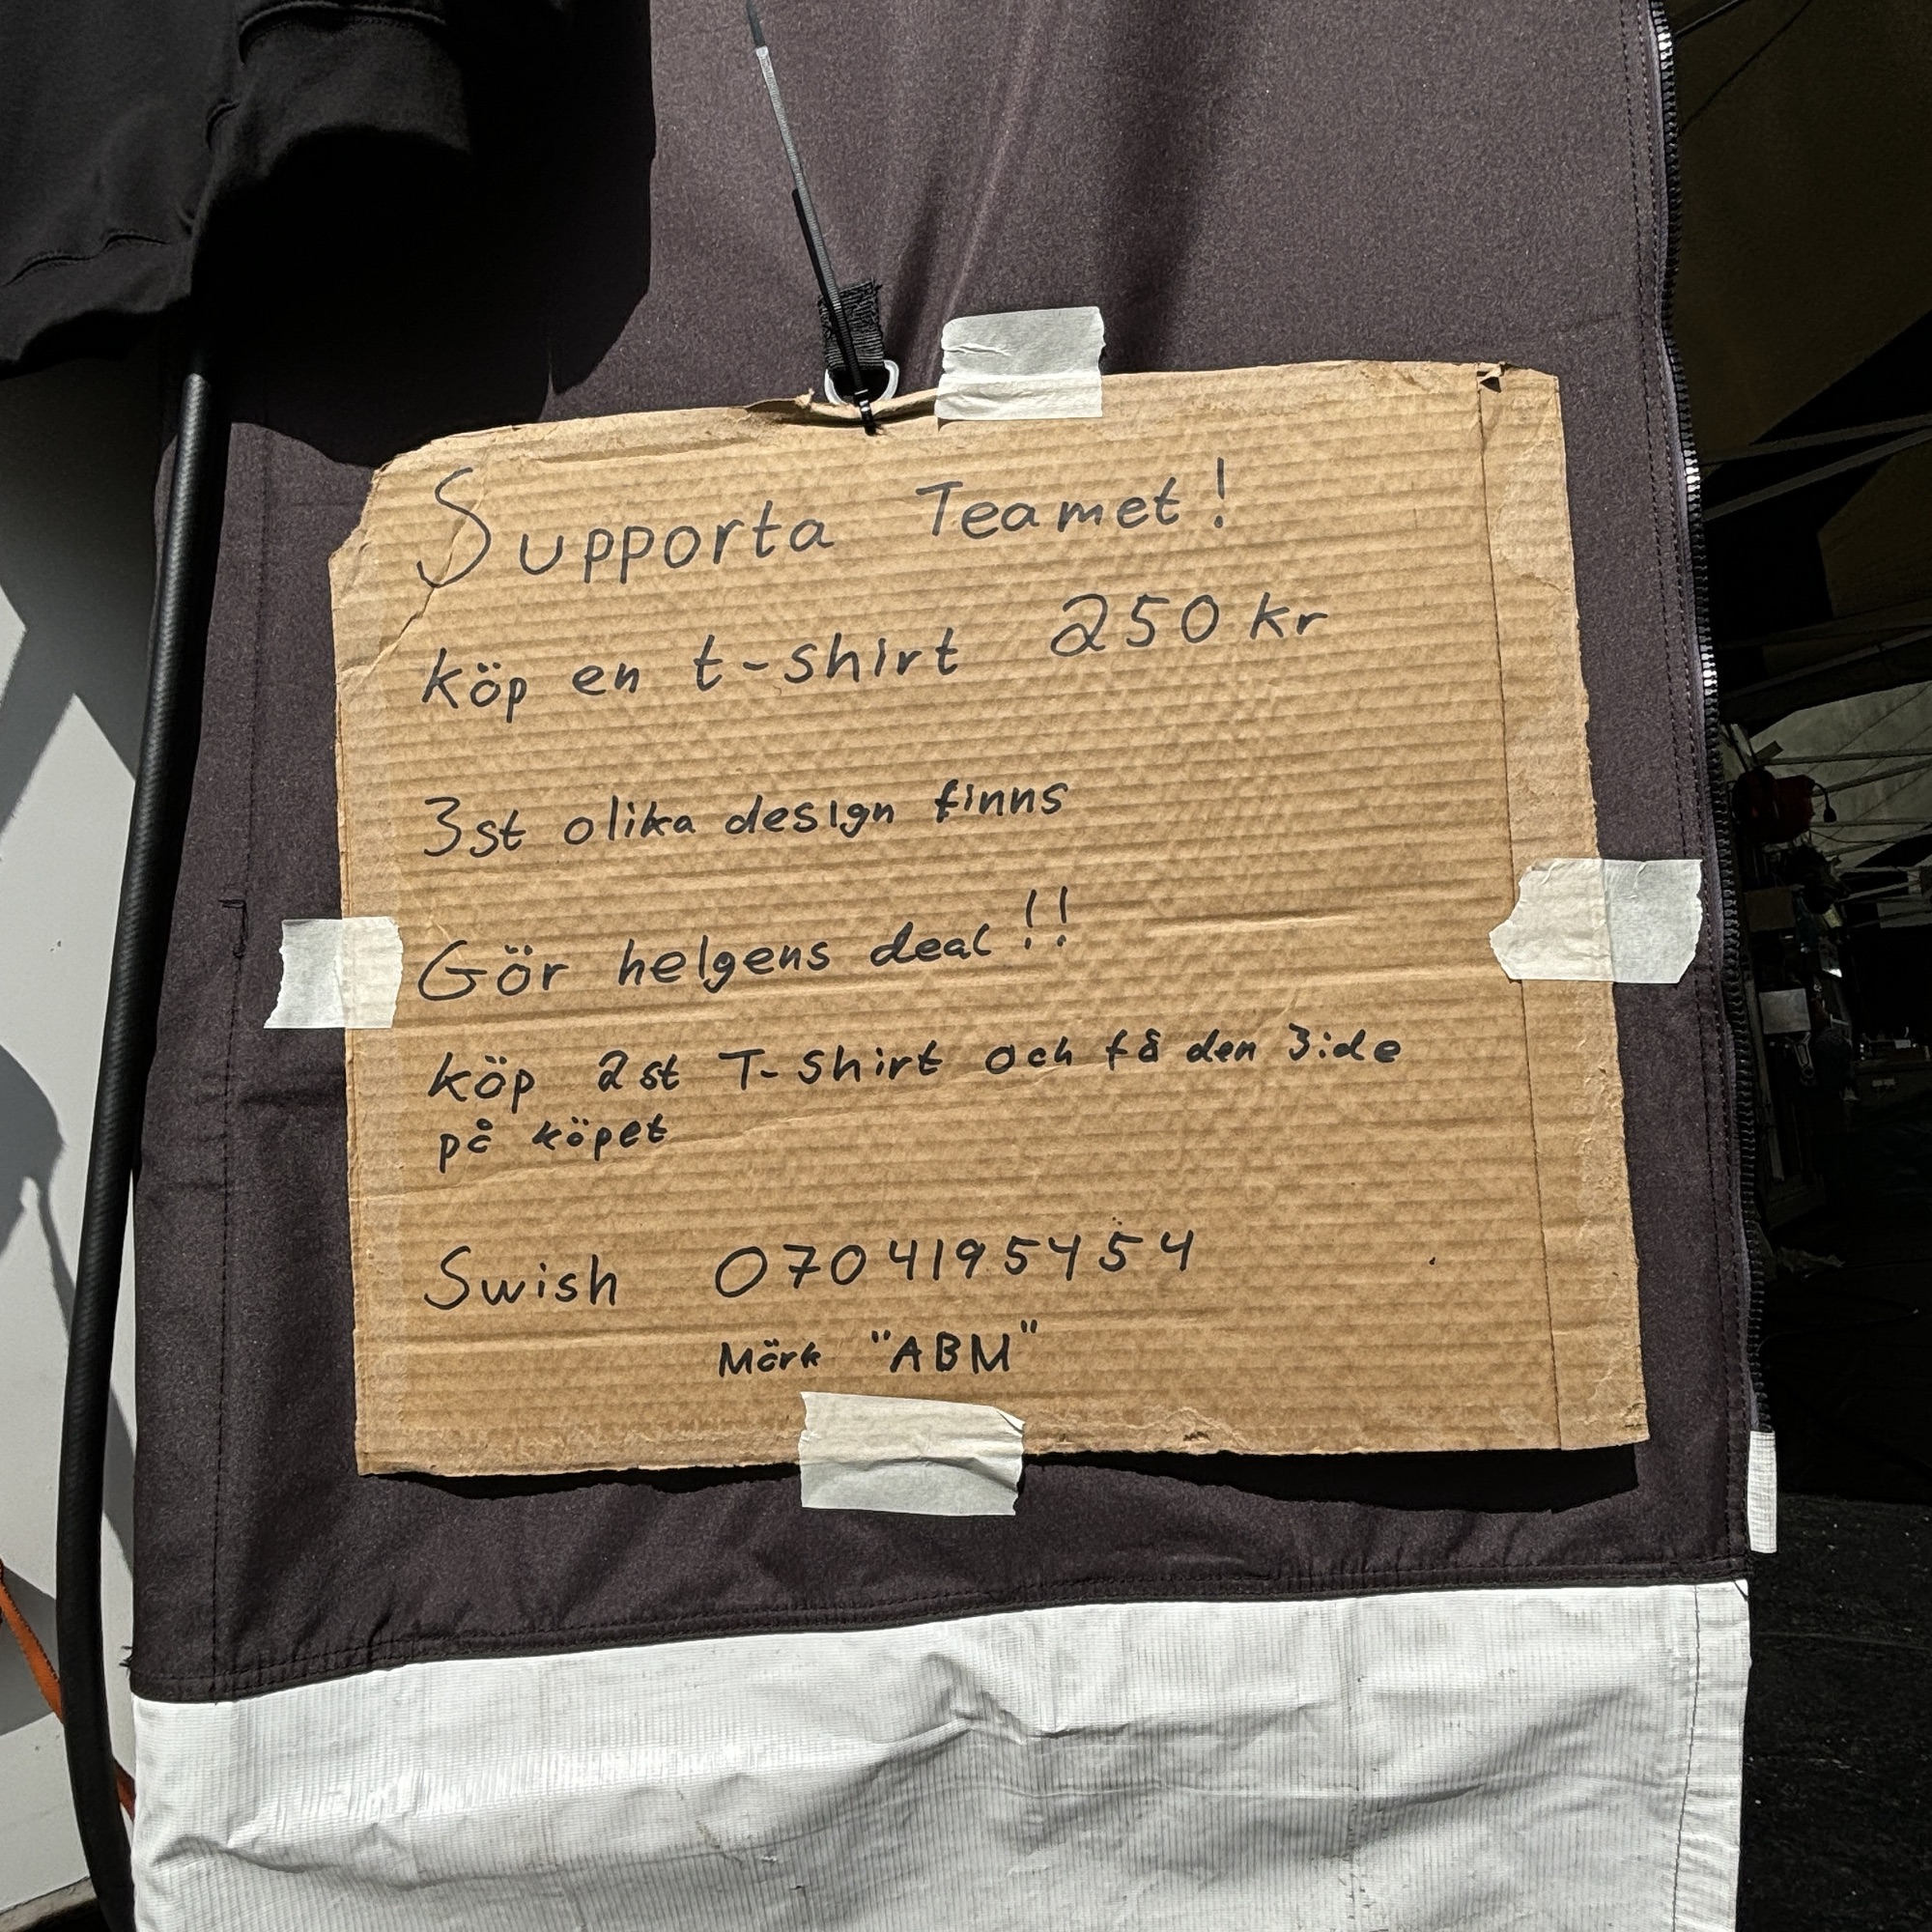 Supporta Teamet!
köp en t-shirt 250 kr
3st olika design finns
Gör helgens deal!!
köp 2st T-Shirt och få den 3:de
på köpet
Swish 0704195454
Märk "ABM"